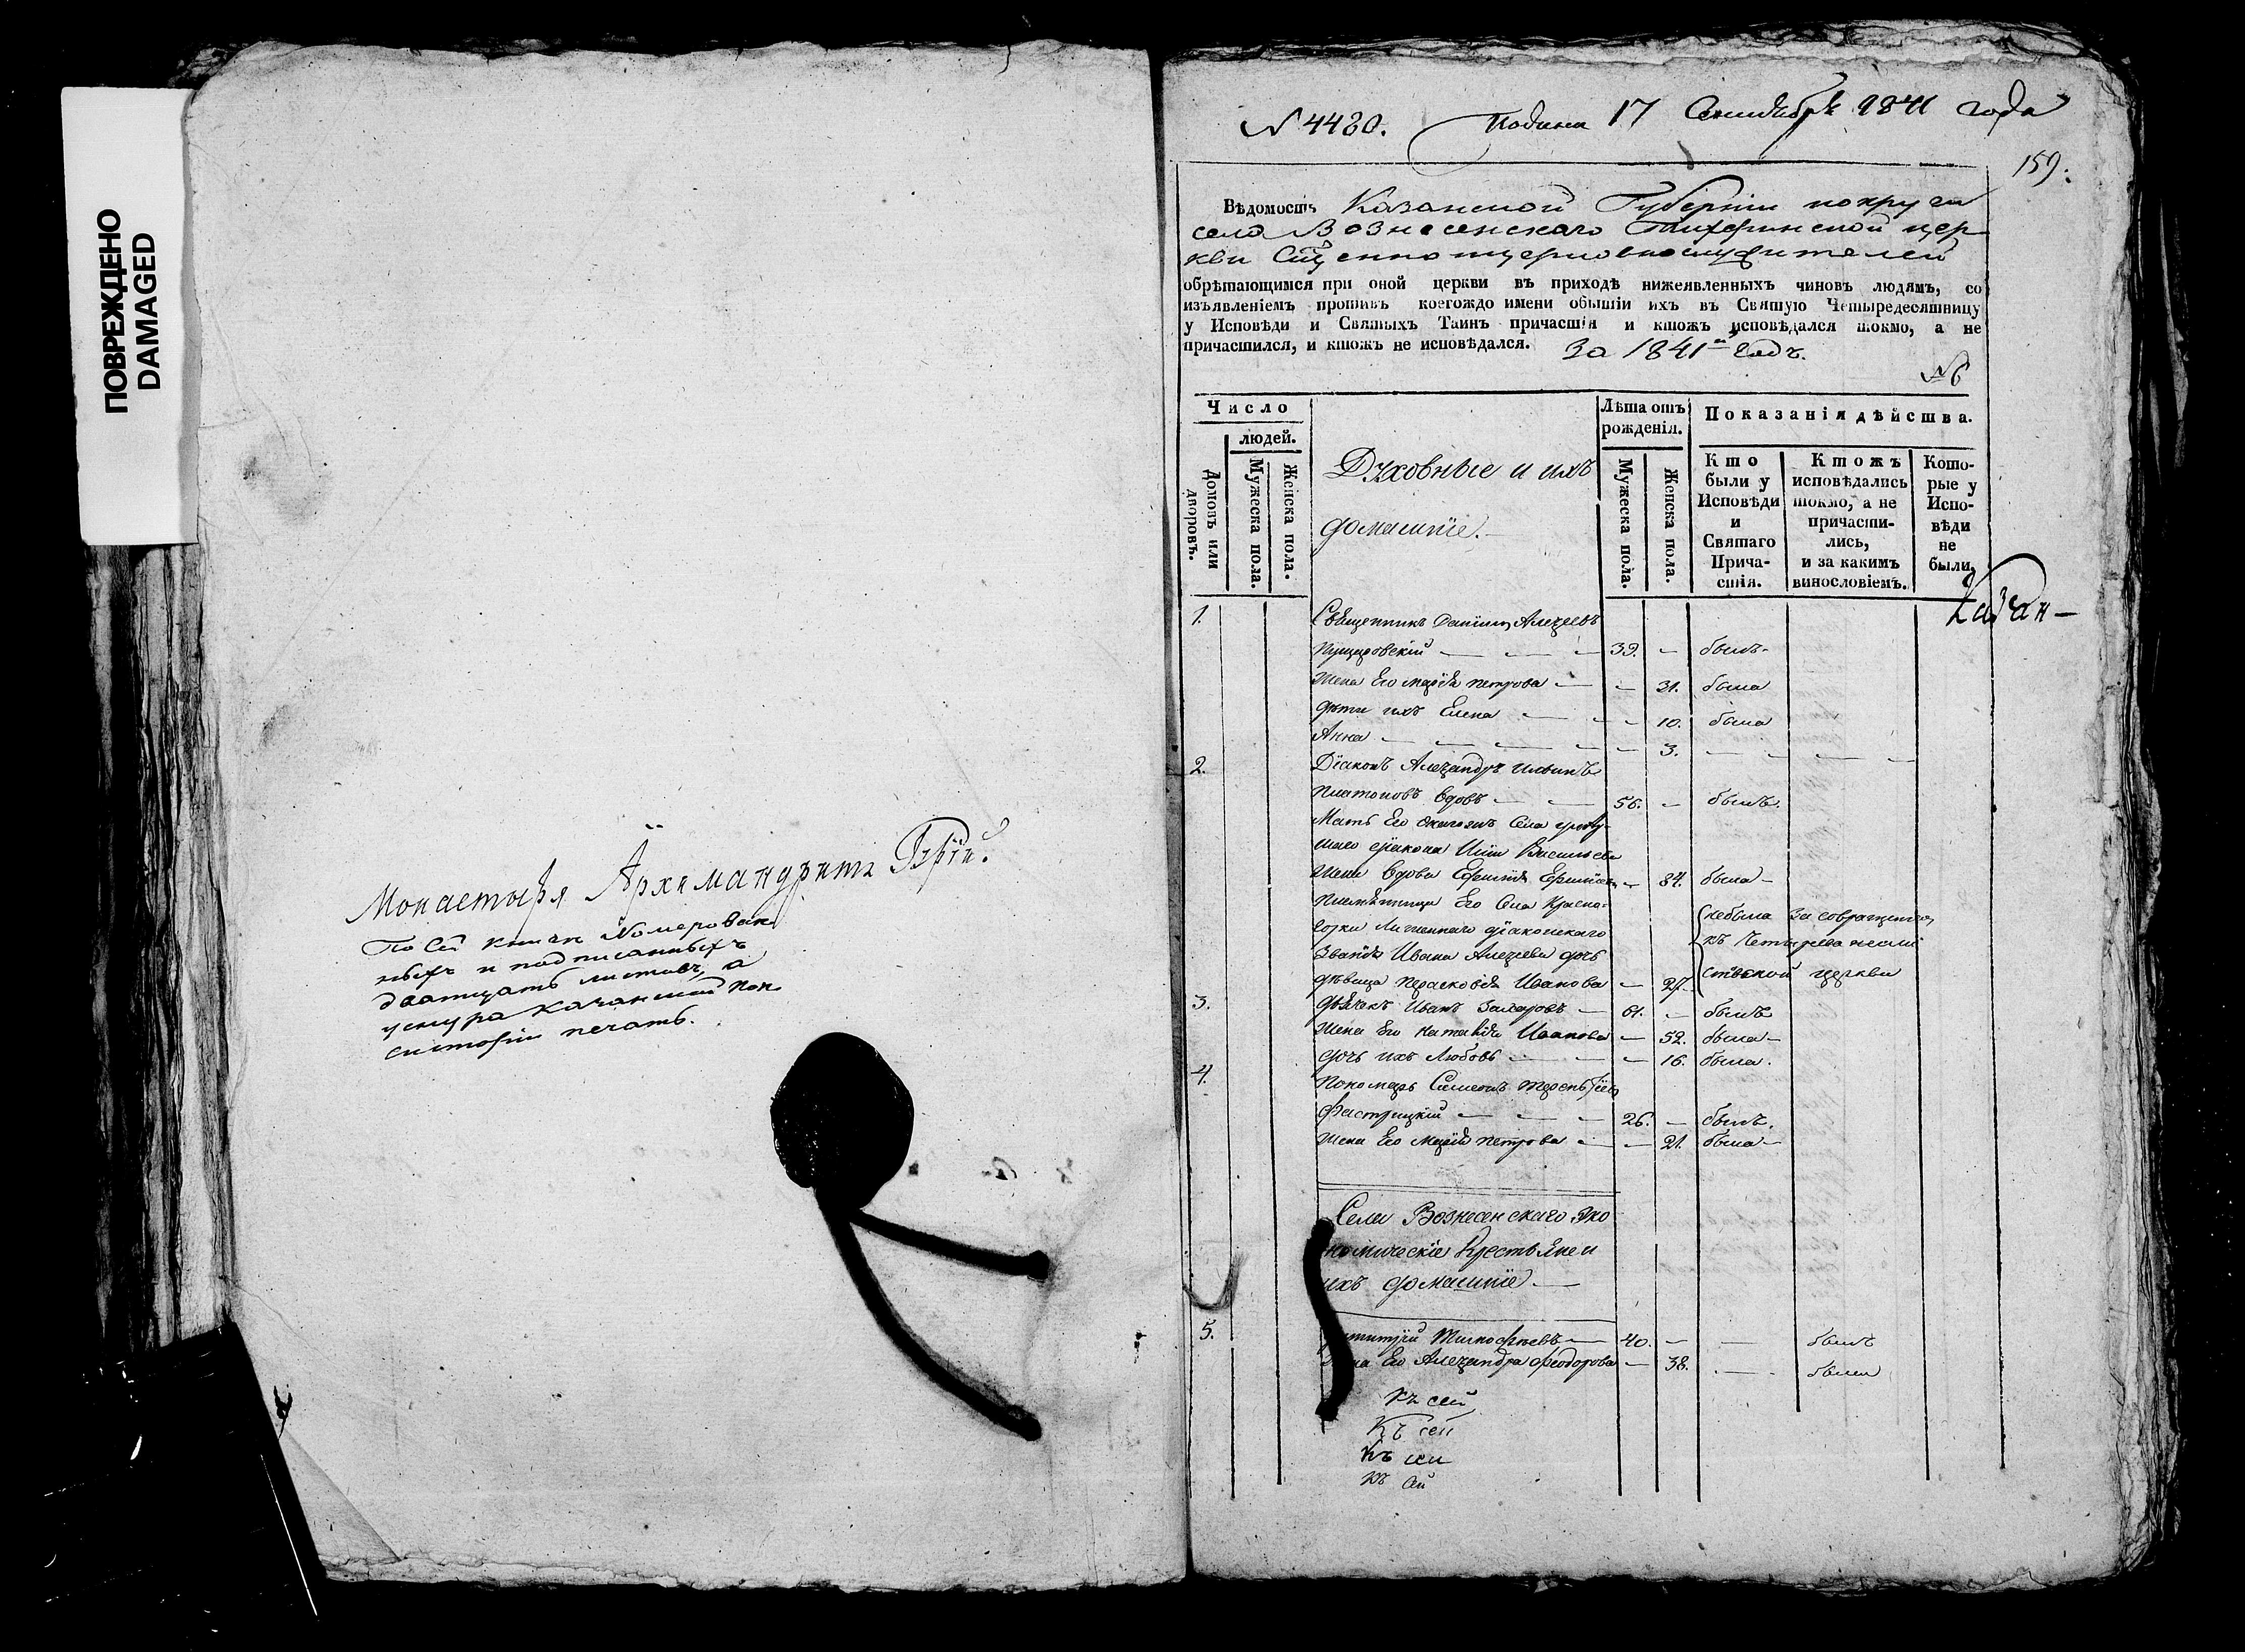 ПОВРЕЖДЕНО
DAMAGED
Монастыря Архимандритъ Гурій.
По сей книгѣ Номерован
ныхъ и подписанныхъ
дватцать листовъ, а
у снура Казанской Кон
систоріи печать.
N 4480. Подана 17 Сентября 1841 года
159.
Вѣдомость Казанской Губерніи
села Вознесенскаго Тихфинской цер
кви Сщенноцерковнослужителей
обрѣтающимся при оной церкви въ приходѣ нижеявленныхъ чиновъ людямъ, со
изъявленіемъ противъ коегождо имени бытіи ихъ въ Святую Четыредесятницу
у Исповѣди и Святыхъ Таинъ причастія и ктожъ исповѣдался токмо, а не
причастился, и ктожъ не исповѣдался. За 1841й Годъ.
№ 6
Число
людей.
Домовъ или дворовъ.
Мужеска пола.
Женска пола.
Духовные и ихъ
домашніе.
Лѣта отъ
рожденія.
Мужеска пола.
Женска пола.
Показанія дѣйства.
Кто
были у
Исповѣди
и
Святаго
Прича-
стія.
Ктожъ
исповѣдались
токмо, а не
причасти-
лись,
и за какимъ
винословіемъ.
Кото-
рые у
Испо-
вѣди
не
были.
Казан-
1. Священникъ Даніилъ Алеѯеевъ
39. - былъ.
Жена Его Марія Петрова - - 31. была
дѣти ихъ Елена - - 10. была
Анна - - 3. - - -
2. Діаконъ Алеѯандръ Ильинъ
Платоновъ вдовъ - 56. - былъ.
Мать Его
діакона Иліи Васильева
Жена вдова - 84. была -
Племянница Его Села Красно-
горки Лишеннаго діаконскаго
Званія Ивана Алеѯеева дочь
дѣвица Парасковія Иванова - 27.
небыла За совращеніемъ
къ
церкви
3. дьячекъ Иванъ Захаровъ - 61. - былъ
Жена Его Наталія Иванова - 52. была -
дочь ихъ Любовь - - 16. была.
4. Пономарь Симеонъ Терентьевъ
26. - былъ.
Жена Его Марія Петрова - - 21. была -
Села Вознесенскаго Эко
номическіе Крестьяне и
ихъ домашніе. -
5. Тимофѣевъ - 40. - - былъ
Жена Его Алеѯандра Феодорова - 38. - - была
Къ сей
Къ сей
Къ сей
Къ сей